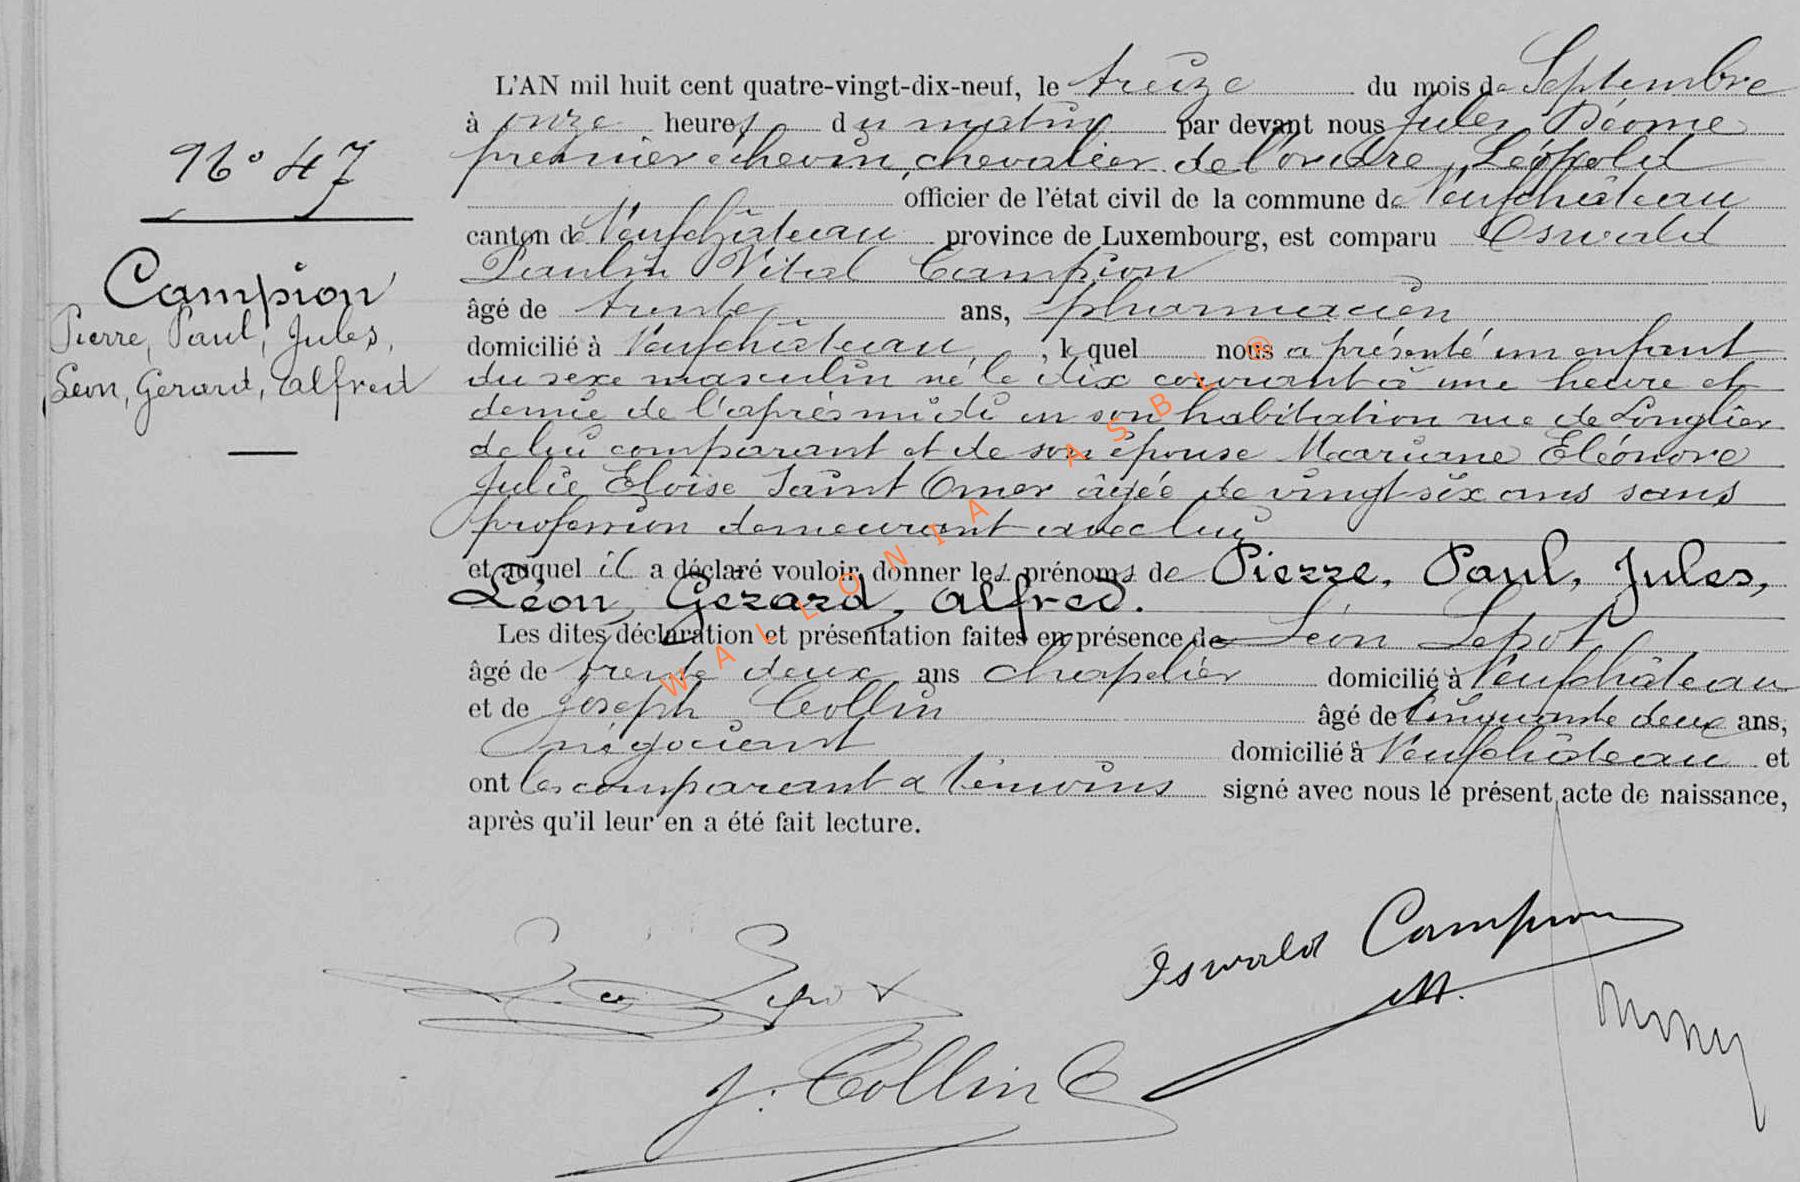 N° 47
Campion
Pierre, Paul, Jules,
Léon, Gérard, Alfred
L'AN mil huit cent quatre-vingt-dix-neuf, le treize du mois de Septembre
à onze heures du matin par devant nous Jules Déome
premier échevin, chevalier de l'ordre Léopold
officier de l'état civil de la commune de Neufchâteau
canton de Neufchâteau province de Luxembourg, est comparu Oswald
Paulin Vital Campion
âgé de trente ans, pharmacien
domicilié à Neufchâteau, , lequel nous a présenté un enfant
du sexe masculin né le dix courant à une heure et
demie de l'après midi en son habitation rue de Longlier
de lui comparant et de son épouse Mariane Eléonore
Julie Eloïse Saint Omer âgée de vingt-six ans sans
profession demeurant avec lui
et auquel il a déclaré vouloir donner les prénoms de Pierre, Paul, Jules,
Léon, Gérard, Alfred.
Les dites déclaration et présentation faites en présence de Léon Lepot
âgé de trente deux ans chapelier domicilié à Neufchâteau
et de Joseph Collin âgé de cinquante deux ans,
négociant domicilié à Neufchâteau et
ont les comparant & témoins signé avec nous le présent acte de naissance,
après qu'il leur en a été fait lecture.
WALLONIA ASBL ®
Léon Lepot
Oswald Campion
J. Collin C